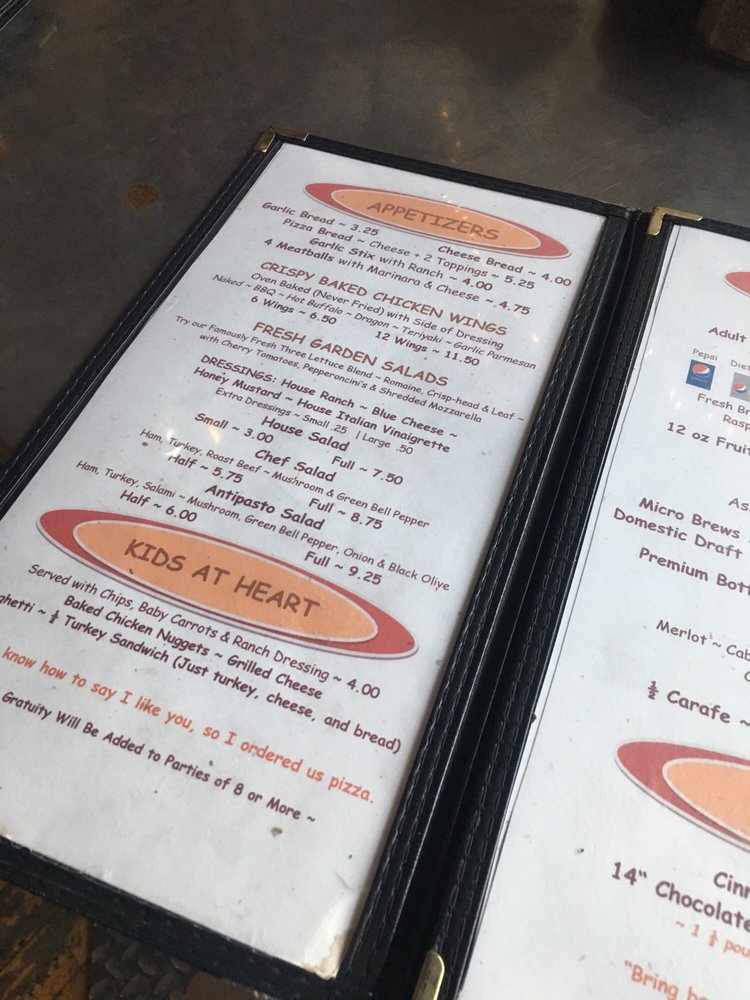 APPETIZERS
Garlic Bread ~ 3.25 Cheese Bread ~ 4.00
Pizza Bread ~ Cheese + 2 Toppings ~ 5.25
Garlic Stix with Ranch ~ 4.00
4 Meatballs with Marinara & Cheese ~ 4.75
CRISPY BAKED CHICKEN WINGS
Oven Baked (Never Fried) with Side of Dressing
Naked ~ BBQ ~ Hot Buffalo ~ Dragon ~ Teriyaki ~ Garlic Parmesan
6 Wings ~ 6.50 12 Wings ~ 11.50
FRESH GARDEN SALADS
Try our Famously Fresh Three Lettuce Blend ~ Romaine, Crisp-head & Leaf ~
with Cherry Tomatoes, Pepperoncini's & Shredded Mozzarella
DRESSINGS: House Ranch ~ Blue Cheese ~
Honey Mustard ~ House Italian Vinaigrette
Extra Dressings ~ Small .25 | Large .50
House Salad
Small ~ 3.00 Full ~ 7.50
Chef Salad
Ham, Turkey, Roast Beef ~ Mushroom & Green Bell Pepper
Half ~ 5.75 Full ~ 8.75
Antipasto Salad
Ham, Turkey, Salami ~ Mushroom, Green Bell Pepper, Onion & Black Olive
Half ~ 6.00 Full ~ 9.25
KIDS AT HEART
Served with Chips, Baby Carrots & Ranch Dressing ~ 4.00
Baked Chicken Nuggets ~ Grilled Cheese
ghetti ~ ½ Turkey Sandwich (Just turkey, cheese, and bread)
know how to say I like you, so I ordered us pizza.
Gratuity Will Be Added to Parties of 8 or More ~
Adult
Pepsi Diet
Fresh Br
Rasp
12 oz Fruit
As
Micro Brews
Domestic Draft
Premium Bott
Merlot ~ Cab
½ Carafe ~
Cinn
14" Chocolate
~ 1 ½ pou
"Bring h